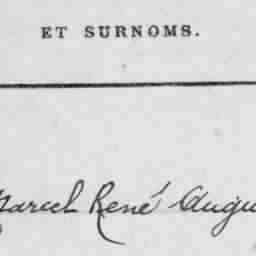 ET SURNOMS.
Marcel René Augu